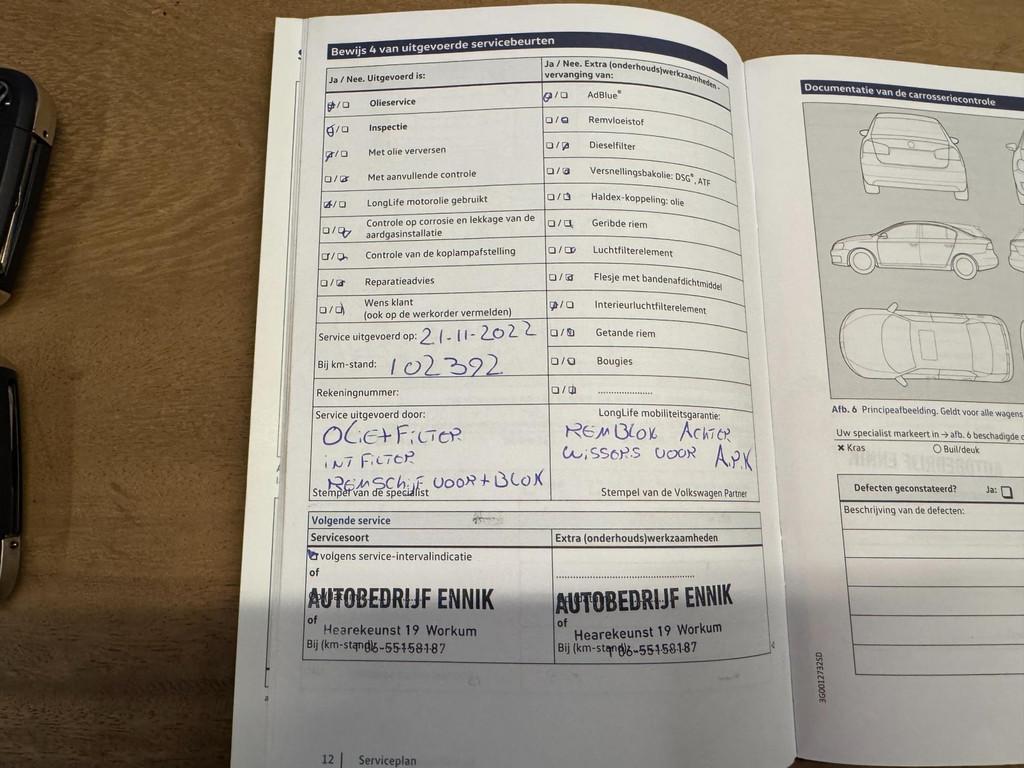 Bewijs 4 van uitgevoerde servicebeurten
Ja / Nee. Uitgevoerd is:
Olieservice
Inspectie
Met olie verversen
Met aanvullende controle
LongLife motorolie gebruikt
Controle op corrosie en lekkage van de
aardgasinstallatie
Controle van de koplampafstelling
Reparatieadvies
Wens klant
(ook op de werkorder vermelden)
Service uitgevoerd op: 21-11-2022
Bij km-stand: 102392
Rekeningnummer:
Service uitgevoerd door:
OLIE+FILTER
INT FILTER
REMSCHIJF VOOR+BLOK
Stempel van de specialist
Ja / Nee. Extra (onderhouds)werkzaamheden -
vervanging van:
AdBlue®
Remvloeistof
Dieselfilter
Versnellingsbakolie: DSG®, ATF
Haldex-koppeling: olie
Geribde riem
Luchtfilterelement
Flesje met bandenafdichtmiddel
Interieurluchtfilterelement
Getande riem
Bougies
LongLife mobiliteitsgarantie:
REMBLOK ACHTER
WISSERS VOOR A.P.K
Stempel van de Volkswagen Partner
Volgende service
Servicesoort
volgens service-intervalindicatie
of
AUTOBEDRIJF ENNIK
of
Hearekeunst 19 Workum
Bij (km-stand):
T 06-55158187
Extra (onderhouds)werkzaamheden
AUTOBEDRIJF ENNIK
of
Hearekeunst 19 Workum
Bij (km-stand):
T 06-55158187
12 | Serviceplan
Documentatie van de carrosseriecontrole
Afb. 6 Principeafbeelding. Geldt voor alle wagens
Uw specialist markeert in → afb. 6 beschadigde
× Kras
Buil/deuk
Defecten geconstateerd?
Ja:
Beschrijving van de defecten:
3G0012732SD